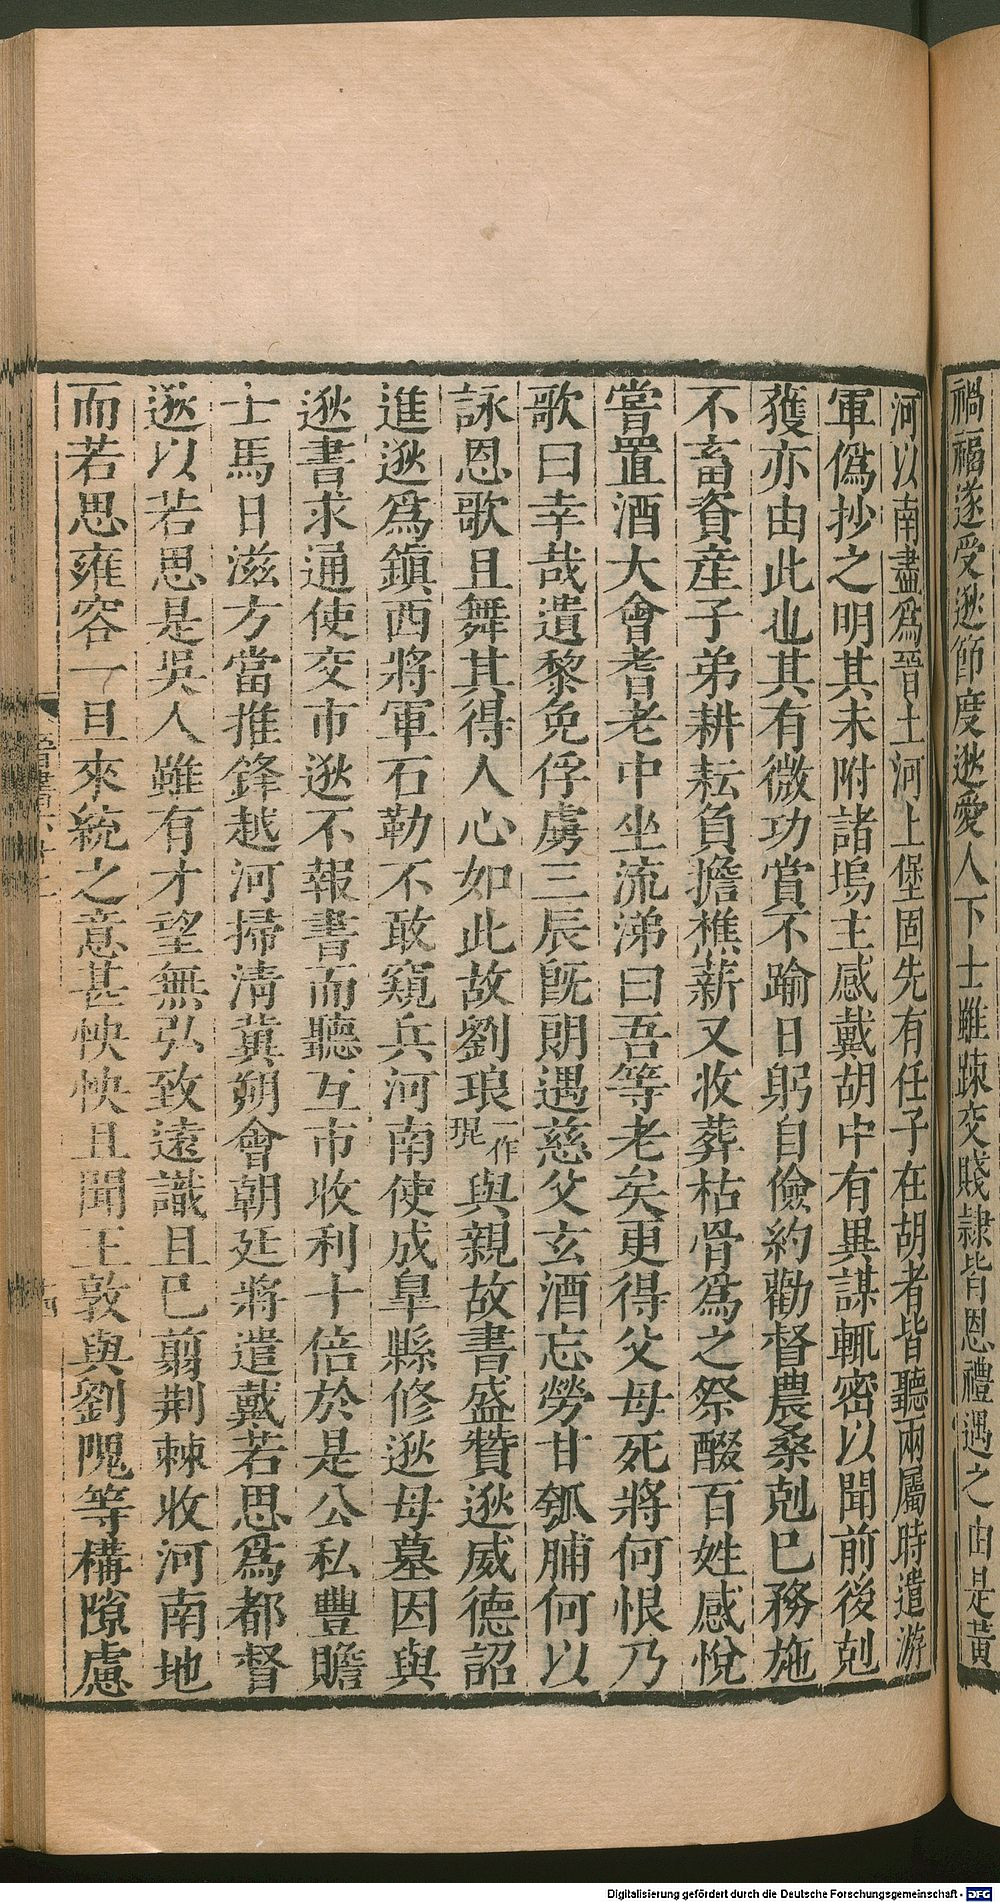 禍福遂受逖節度逖愛人下士雖疎交賤隷皆恩禮遇之由是黄
河以南盡爲晉土河上堡固先有任子在胡者皆聽兩屬時遣游
軍僞抄之明其未附諸塢主感戴胡中有異謀輒密以聞前後剋
獲亦由此也其有微功賞不踰日躬自儉約勸督農桑剋巳務施
不畜資産子弟耕耘負擔樵薪又收葬枯骨爲之祭醊百姓感悅
嘗置酒大會耆老中坐流涕曰吾等老矣更得父母死將何恨乃
歌曰幸哉遺黎免俘虜三辰旣朗遇慈父玄酒忘勞甘瓠脯何以
詠恩歌且舞其得人心如此故劉琅一作琨與親故書盛贊逖威德詔
進逖爲鎮西將軍石勒不敢窺兵河南使成臯縣修逖母墓因與
逖書求通使交市逖不報書而聽互市收利十倍於是公私豐贍
士馬日滋方當推鋒越河掃淸冀朔會朝廷將遣戴若思爲都督
逖以若思是吳人雖有才望無弘致遠識且巳翦荆棘收河南地
而若思雍容一旦來統之意甚怏怏且聞王敦與劉隗等構隙慮
晉書六十二
Digitalisierung gefördert durch die Deutsche Forschungsgemeinschaft - DFG